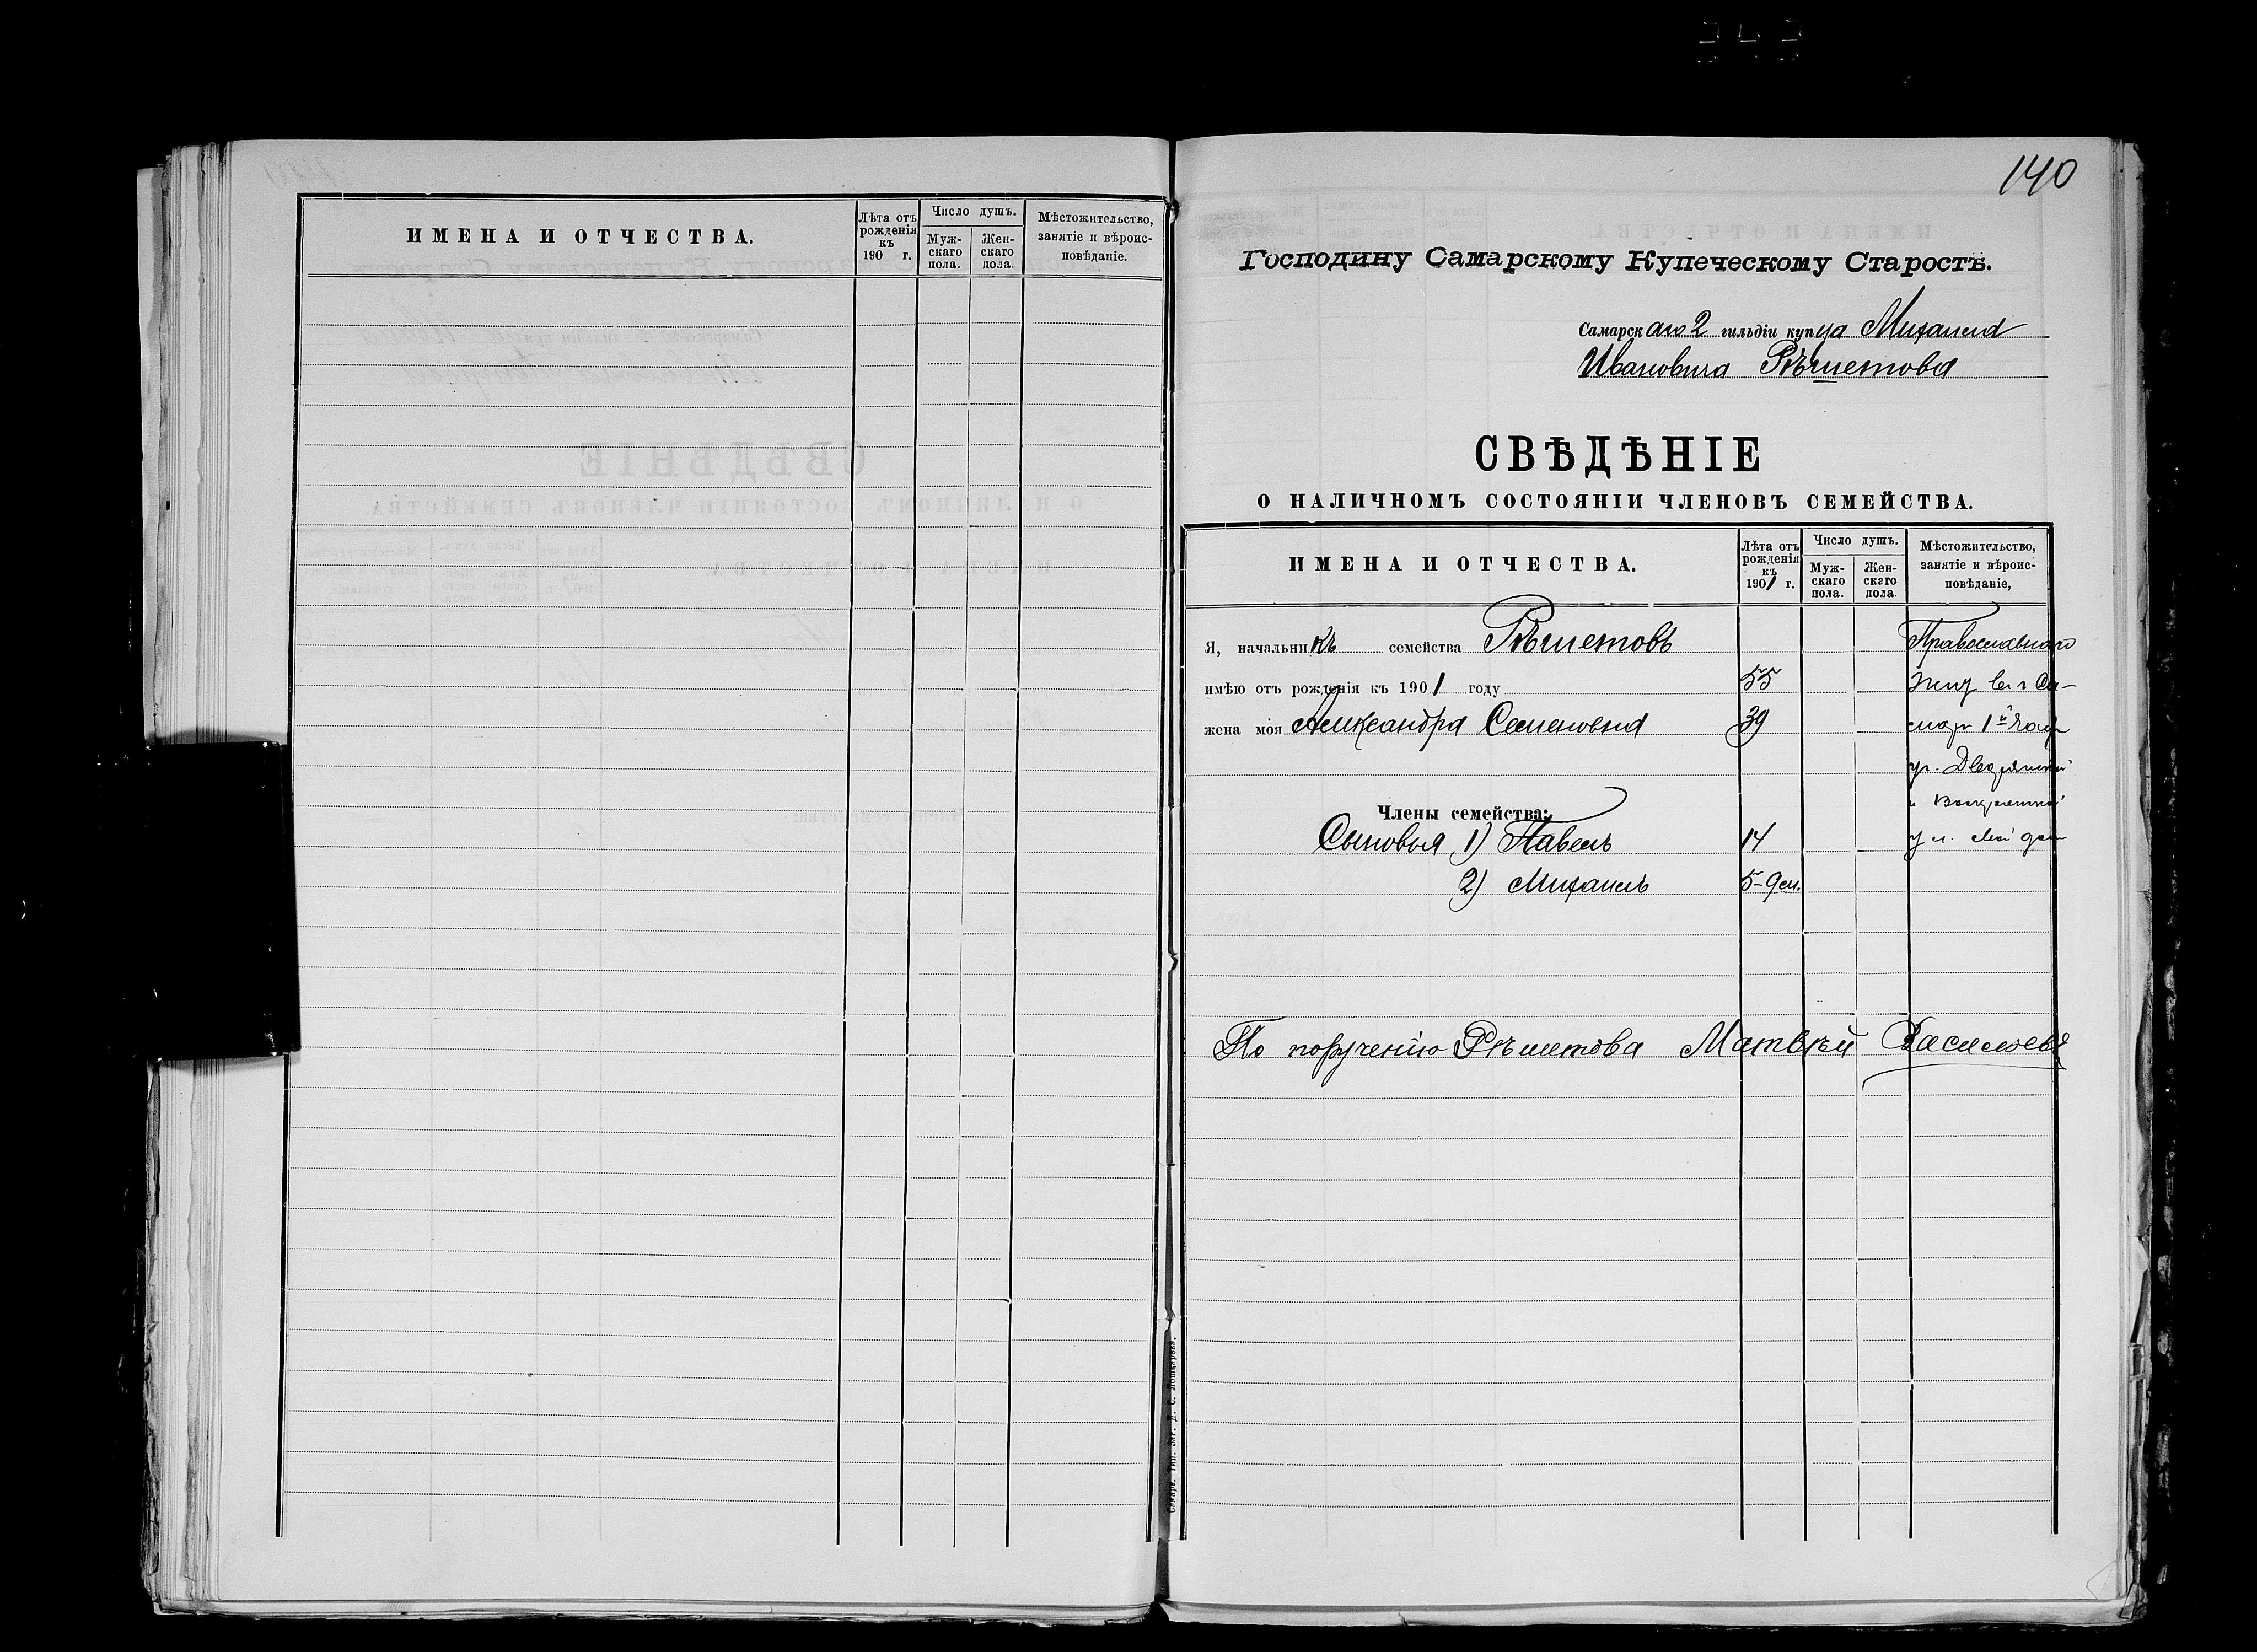 ИМЕНА И ОТЧЕСТВА.
Лѣта отъ рожденія къ 190 г.
Число душъ.
Мужскаго пола.
Женскаго пола.
Мѣстожительство, занятіе и вѣроисповѣданіе.
140
Господину Самарскому Купеческому Старостѣ.
Самарскаго 2 гильдіи купца Михаила
Ивановича Рѣшетова
СВѢДѢНІЕ
О НАЛИЧНОМЪ СОСТОЯНІИ ЧЛЕНОВЪ СЕМЕЙСТВА.
ИМЕНА И ОТЧЕСТВА.
Лѣта отъ рожденія къ 1901 г.
Число душъ.
Мужскаго пола.
Женскаго пола
Мѣстожительство, занятіе и вѣроисповѣданіе,
Я, начальникъ семейства Рѣшетовъ Православнаго
имѣю отъ рожденія къ 1901 году 55 въ г Са-
жена моя Александра Семеновна 39 1й
Дворянской
и
Члены семейства:
Сыновья 1) Павелъ 14
2) Михаилъ 5-9 м.
По порученію Рѣшетова Матвѣй Васильевъ
Самара. Тип. Д. С. Лошкарева.